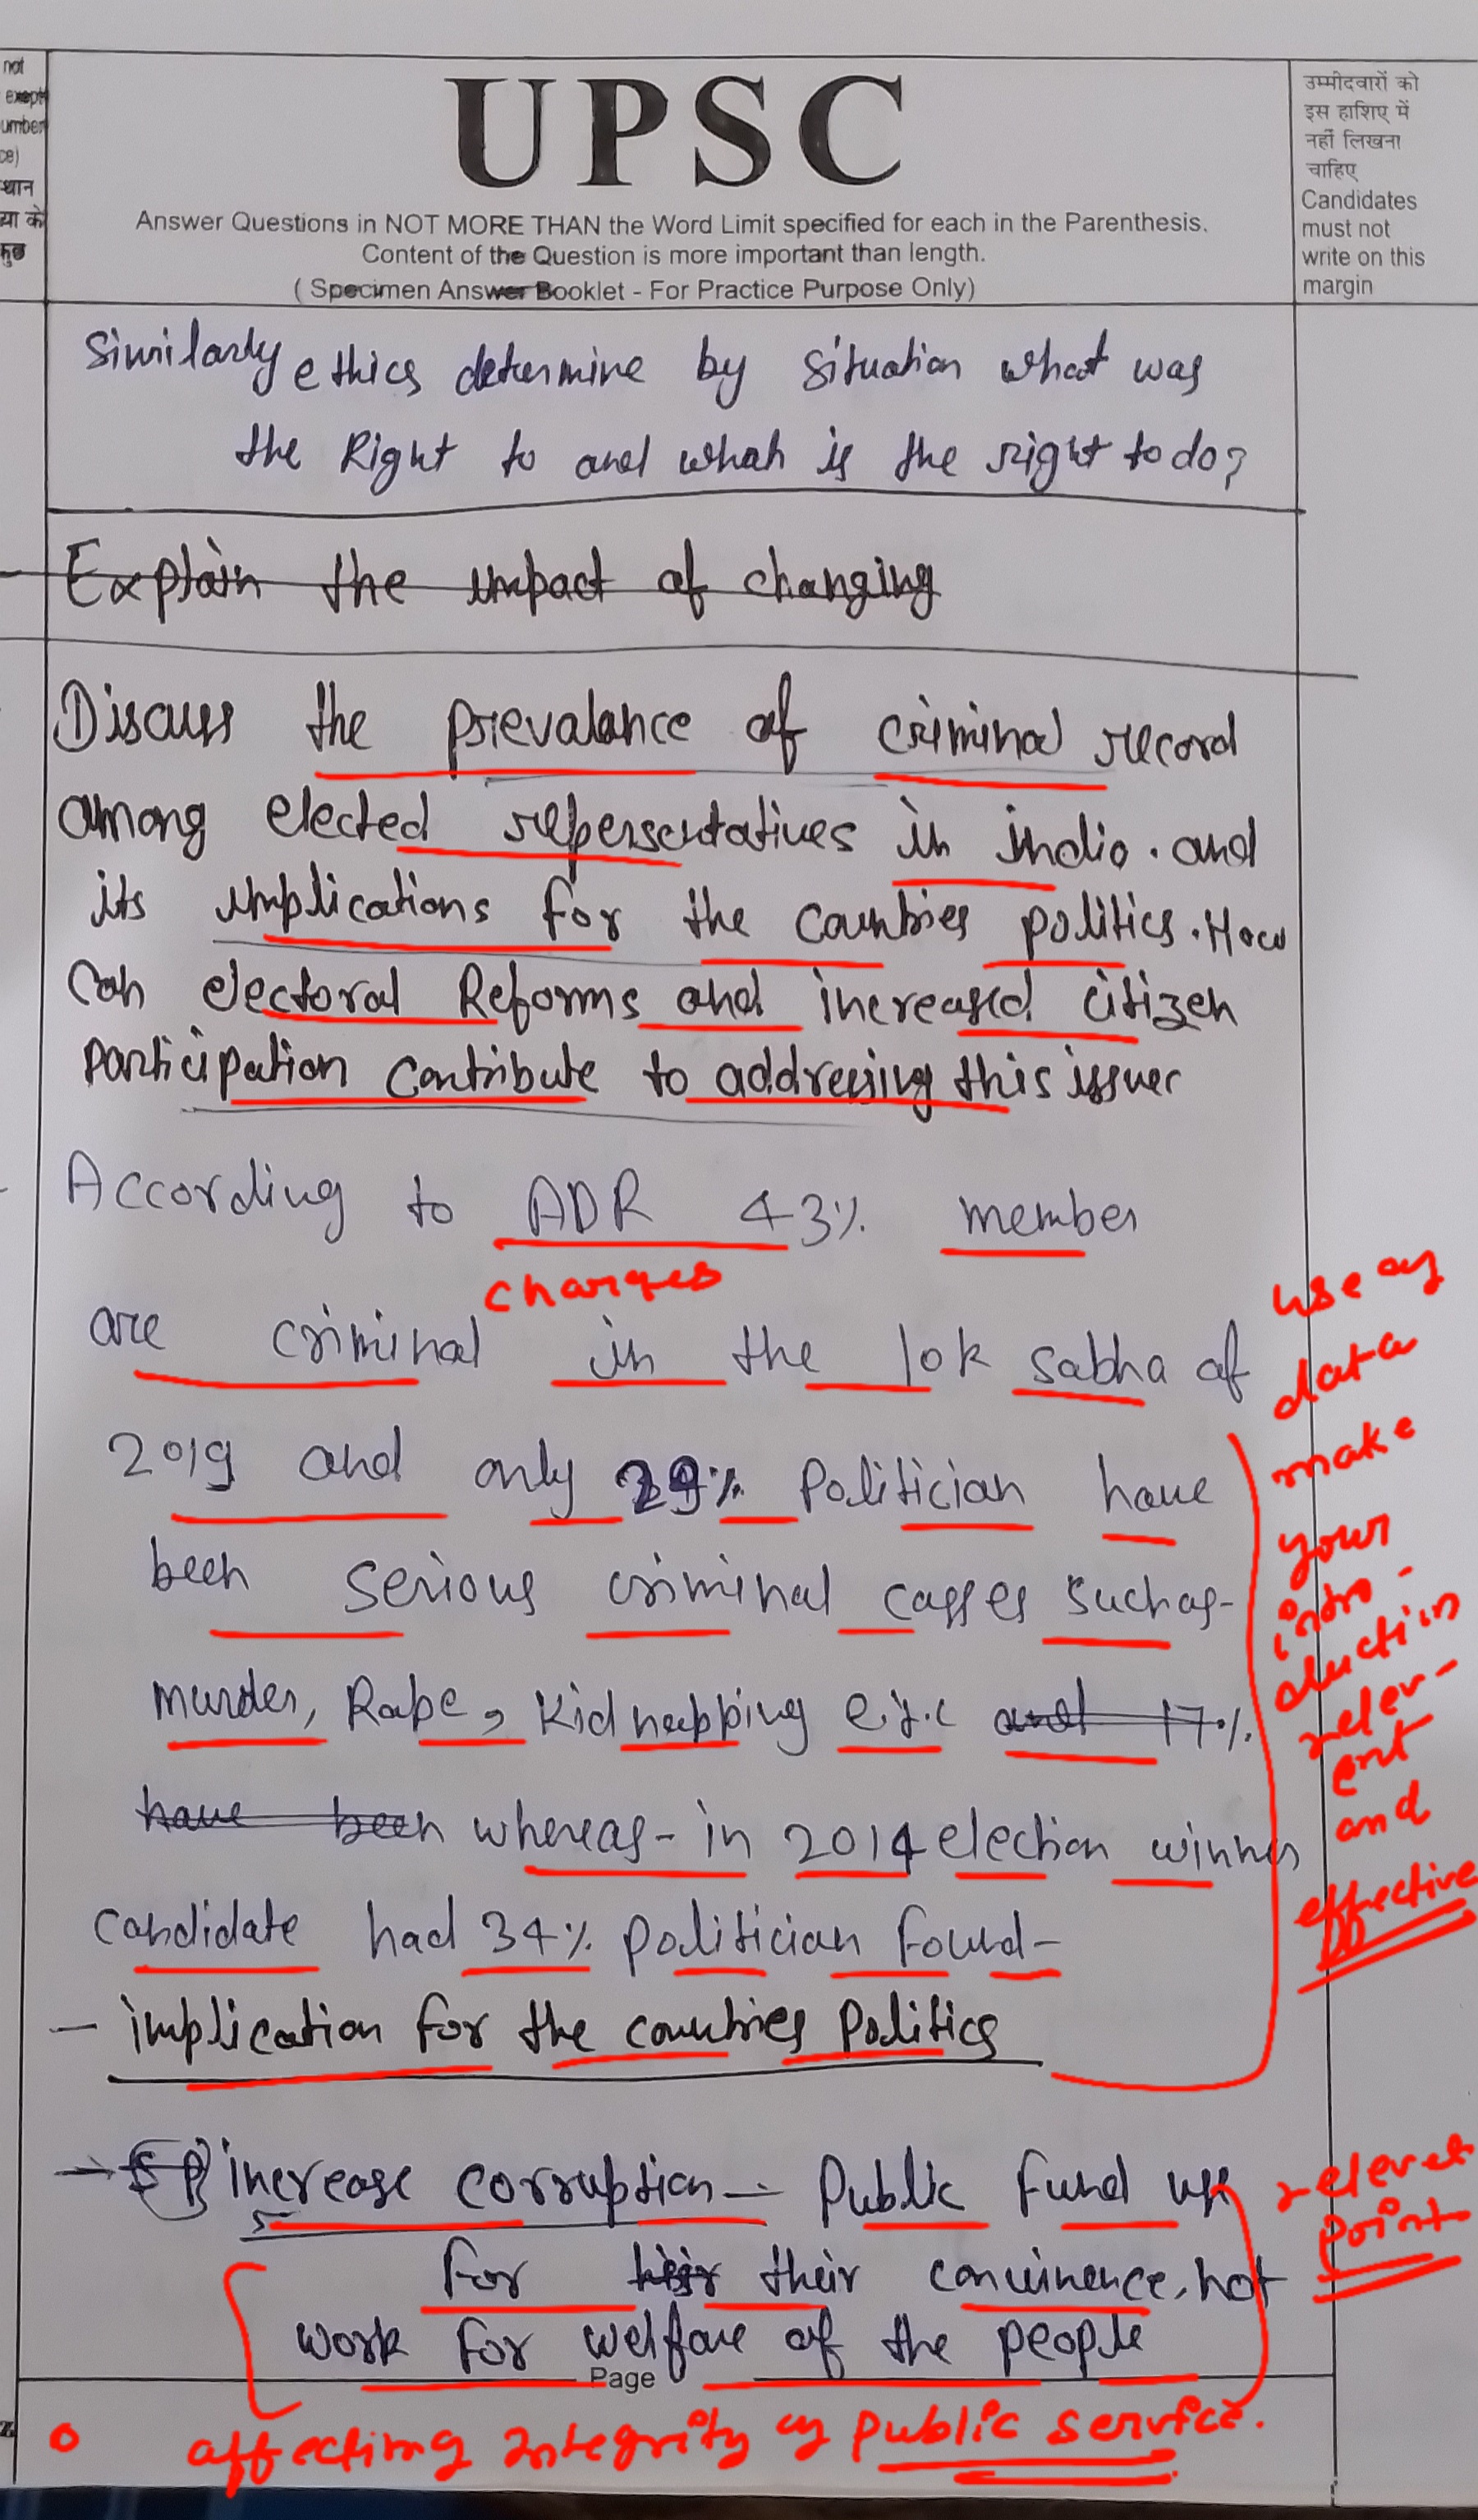 not
exept
umber
ce)
थान
या के
कुछ
UPSC
Answer Questions in NOT MORE THAN the Word Limit specified for each in the Parenthesis.
Content of the Question is more important than length.
( Specimen Answer Booklet - For Practice Purpose Only)
उम्मीदवारों को
इस हाशिए में
नहीं लिखना
चाहिए
Candidates
must not
write on this
margin
Similarly ethics determine by situation what was
the Right to and what is the right to do?
Explain the impact of changing
Discuss the prevalance of criminal record
among elected repersentatives in india. and
its implications for the countries politics. How
can electoral Reforms and increased citizen
participation contribute to addressing this issues
According to ADR 43% member
charges
are criminal in the lok sabha of
2019 and only 29% Politician have
been serious criminal casses such as-
murder, Rape, Kidnapping e.t.c and 17%
have been whereas - in 2014 election winner
candidate had 34% politician found-
use of
data
make
your
intro-
duction
relev-
ent
and
effective
- implication for the countries Politics
→ increase corruption - Public fund use
for their convinence, not
work for welfare of the people
relevet
point
Page
affecting integrity of public service.